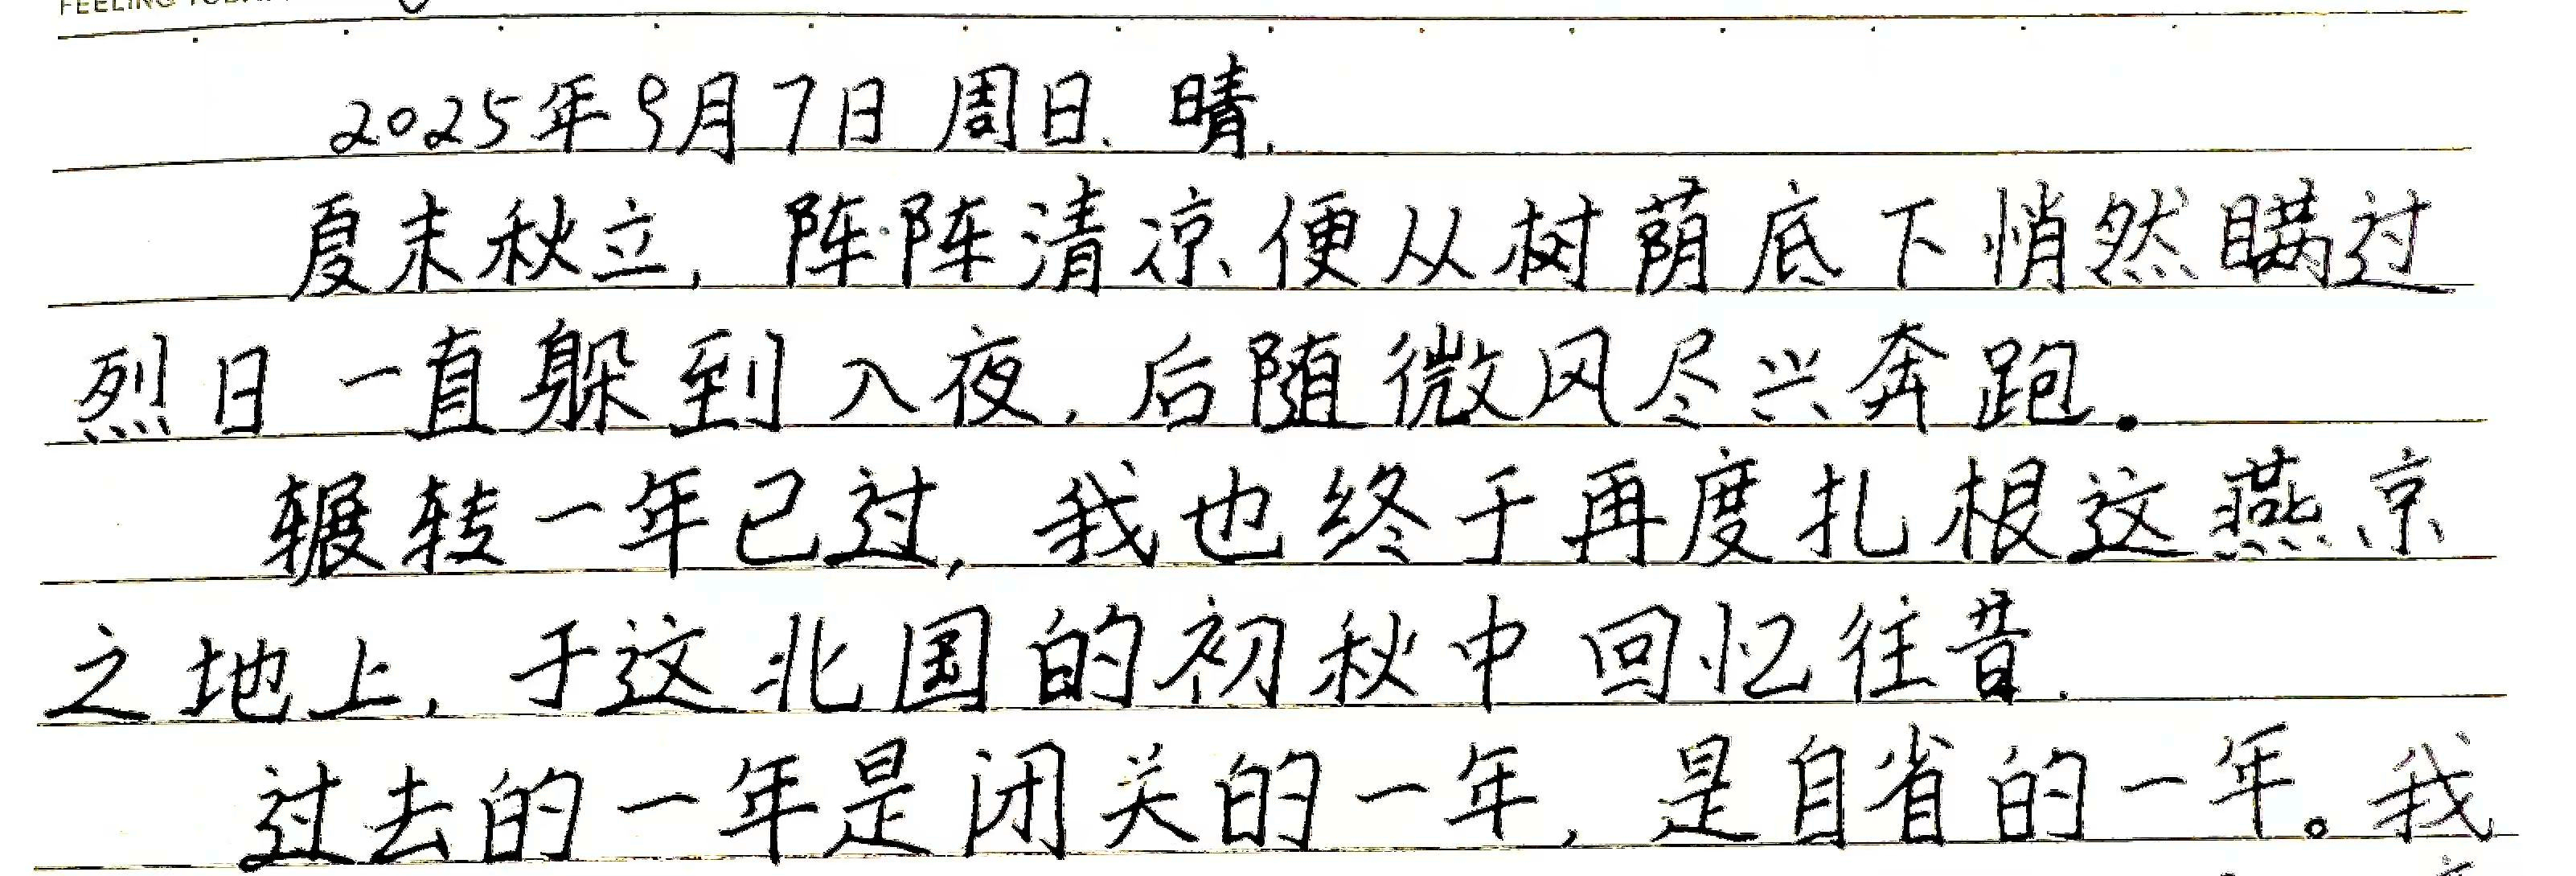 FEELING
2025年9月7日 周日. 晴.
夏末秋立, 阵阵清凉便从树荫底下悄然瞒过
烈日一直躲到入夜, 后随微风尽兴奔跑.
辗转一年已过, 我也终于再度扎根这燕京
之地上, 于这北国的初秋中回忆往昔.
过去的一年是闭关的一年, 是自省的一年。我